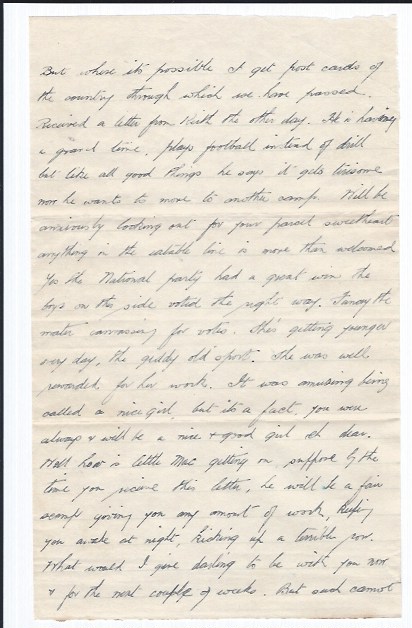 But where its possible I get post cards of
the country through which we have passed.
Received a letter from the other day. He is having
a grand time, plays football instead of drill
but like all good things he says it gets tiresome
now he wants to move to another camp. Will be
anxiously looking out for your parcel sweetheart
anything in the eatable line is more than welcomed
Yes the National party had a great win the
boys on this side voted the right way. Fancy the
mater canvassing for votes. She's getting younger
every day, the giddy old sport. She was well
rewarded for her work. It was amusing being
called a nice girl, but its a fact, you were
always & will be a nice & good girl eh dear.
Well how is little Mac getting on, suppose by the
time you receive this letter, he will be a fair
scamp giving you any amount of work, keeping
you awake at night, kicking up a terrible row.
What would I give darling to be with you now
& for the next couple of weeks. But such cannot